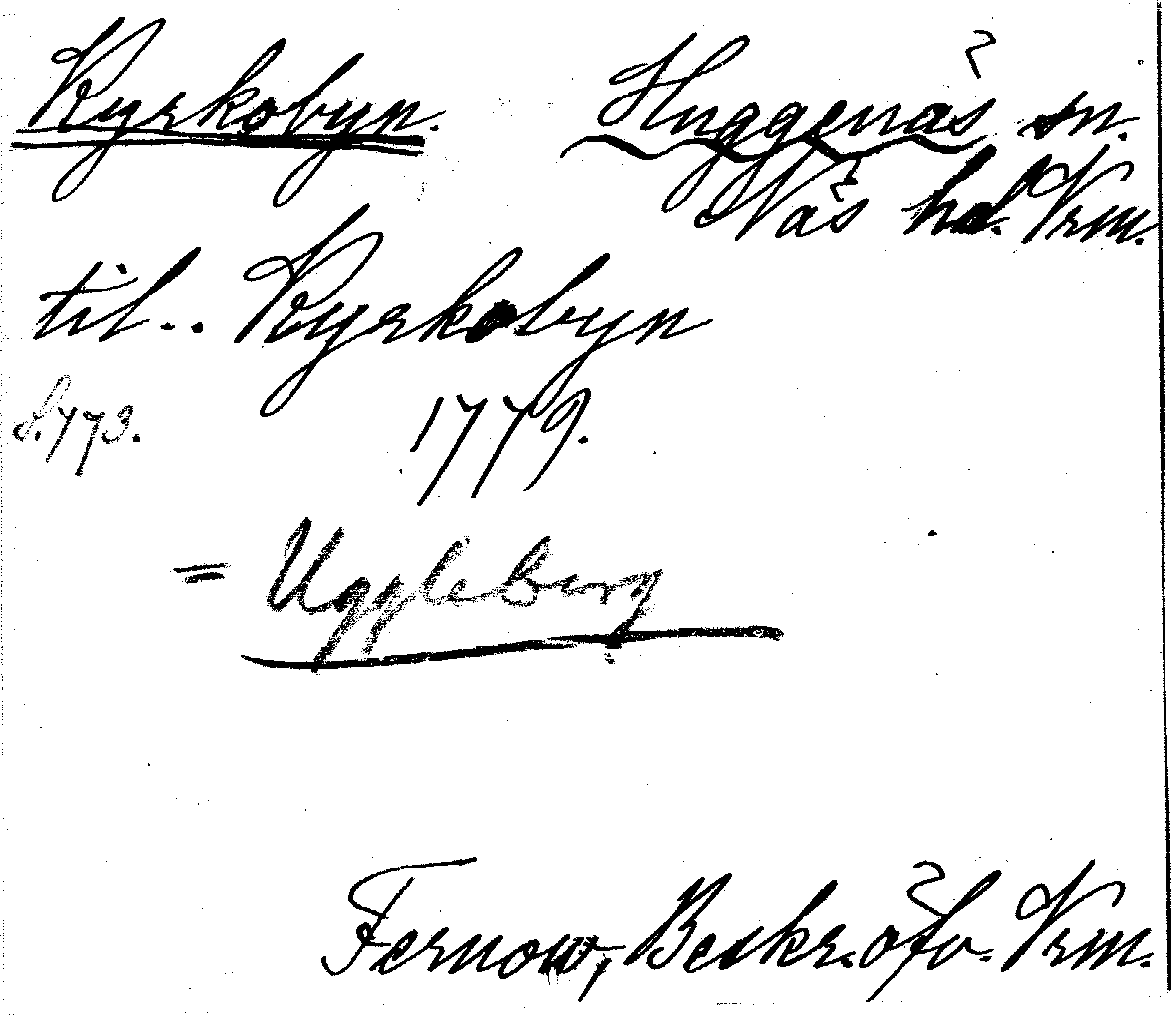 Kyrkobyn. Huggenäs sn.
Näs hd. Vrm.
til.. Kyrkobyn
S. 773. 1779.
= Uggleberg
Fernow, Beskr. öfv. Vrm.